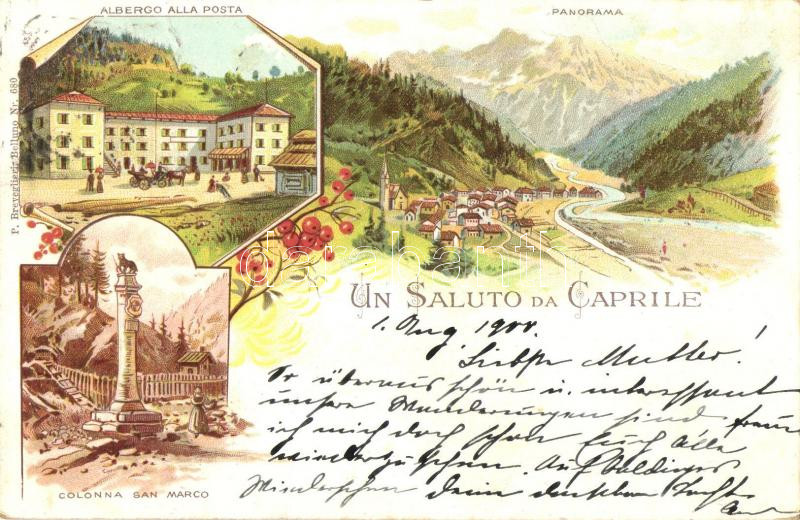 ALBERGO ALLA POSTA
PANORAMA
P. Breveglieri Belluno Nr. 680
UN SALUTO DA CAPRILE
COLONNA SAN MARCO
darabanth
1. Aug 1900.
Liebste Mutter!
So überaus schön u. interessant
unsere Wanderungen sind, freue
ich mich doch schon Euch Alle
wiederzusehen. Auf baldiges
Wiedersehen deine dankbare